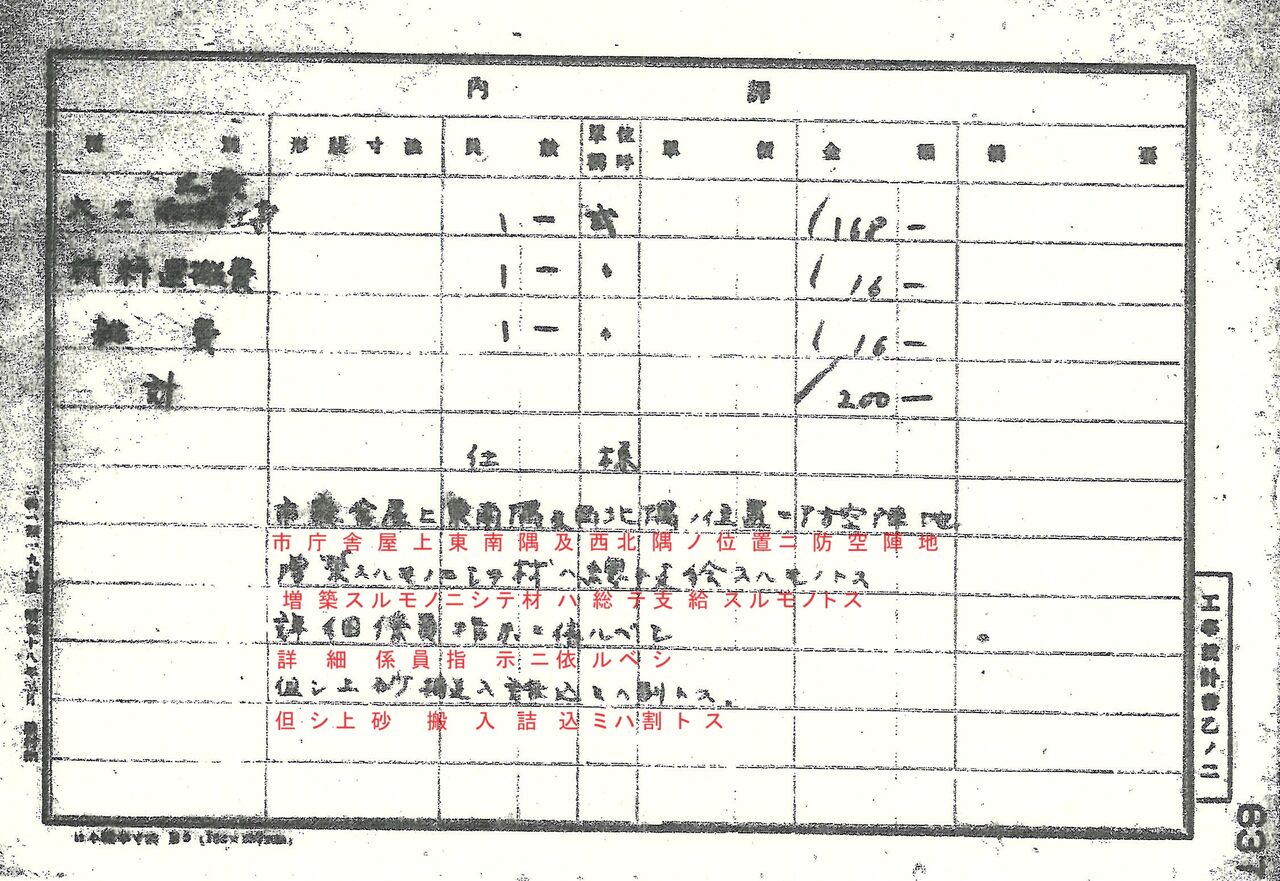 内 譯
種 類 形狀寸法 員 數 單位 稱呼 單 價 金 額 摘 要
大工 工事 1 — 式 168 —
材料運搬費 1 — 〃 16 —
雑 費 1 — 〃 16 —
計 200 —
仕 様
市廳舎屋上東南隅及西北隅ノ位置ニ防空陣地
市庁舎屋上東南隅及西北隅ノ位置ニ防空陣地
増築スルモノニシテ材ハ総テ支給スルモノトス
増築スルモノニシテ材ハ総テ支給スルモノトス
詳細係員指示ニ依ルベシ
詳細係員指示ニ依ルベシ
但シ土砂搬入詰込ミハ別トス
但シ上砂 搬入詰込ミハ割トス
工事設計書乙ノ二
63